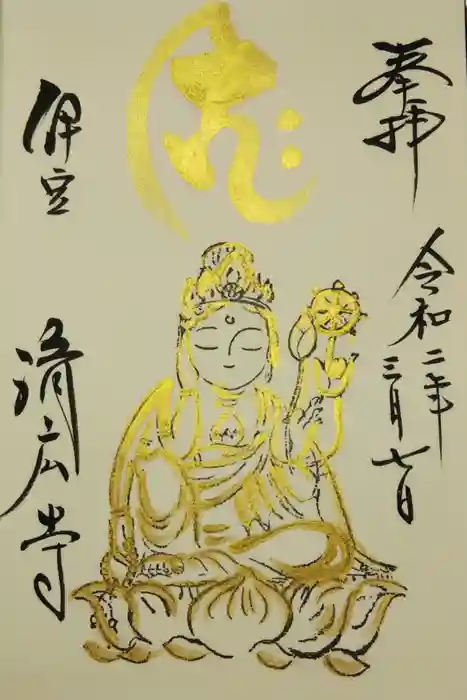 奉拝
令和二年
三月七日
伊豆
済広寺